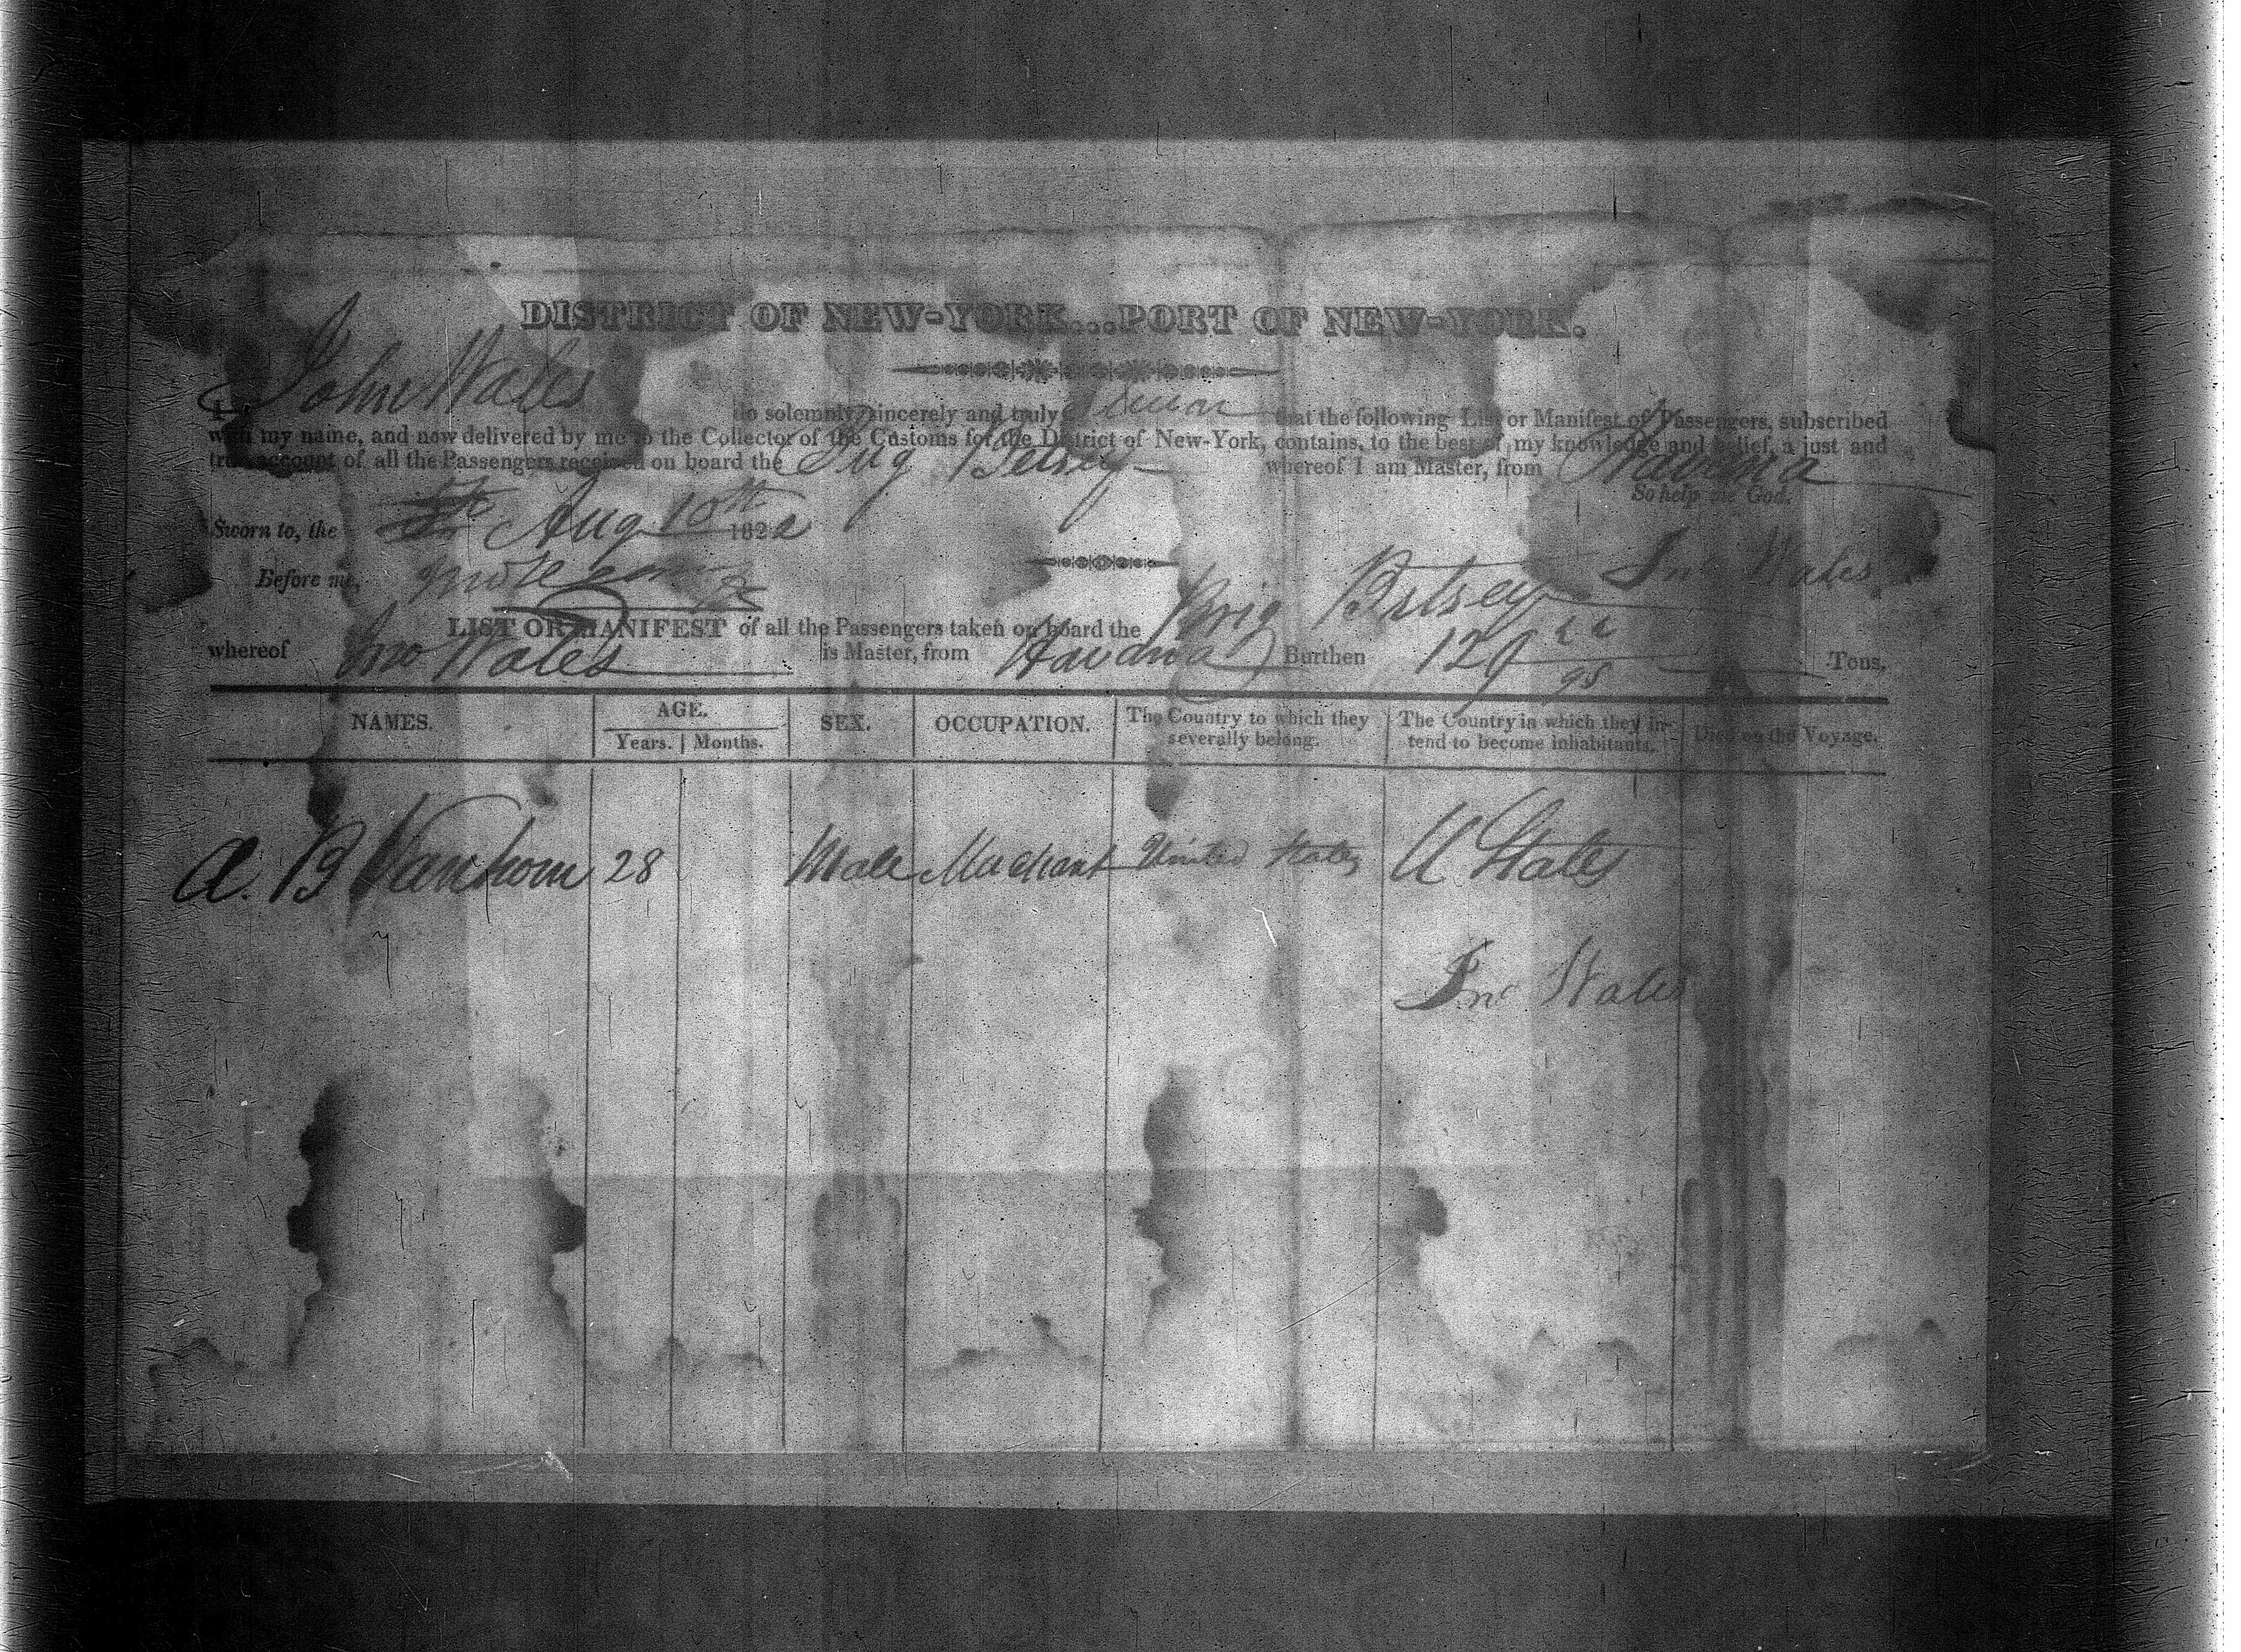 DISTRICT OF NEW-YORK...PORT OF NEW-YORK.
I, John Wales do solemnly, sincerely and truly swear that the following List or Manifest of Passengers, subscribed
with my name, and now delivered by me to the Collector of the Customs for the District of New-York, contains, to the best of my knowledge and belief, a just and
true account of all the Passengers received on board the Brig Betsey whereof I am Master, from Havana
So help me God.
Sworn to, the Aug 10th 1822
Before me, Jno Wales
LIST OR MANIFEST of all the Passengers taken on board the Brig Betsey
whereof Jno Wales is Master, from Havana Burthen 129 95 Tons.
NAMES. AGE. Years. Months. SEX. OCCUPATION. The Country to which they severally belong. The Country in which they intend to become inhabitants. Died on the Voyage.
A. B Vanhorn 28 Male Merchant United States U States
Jno Wales